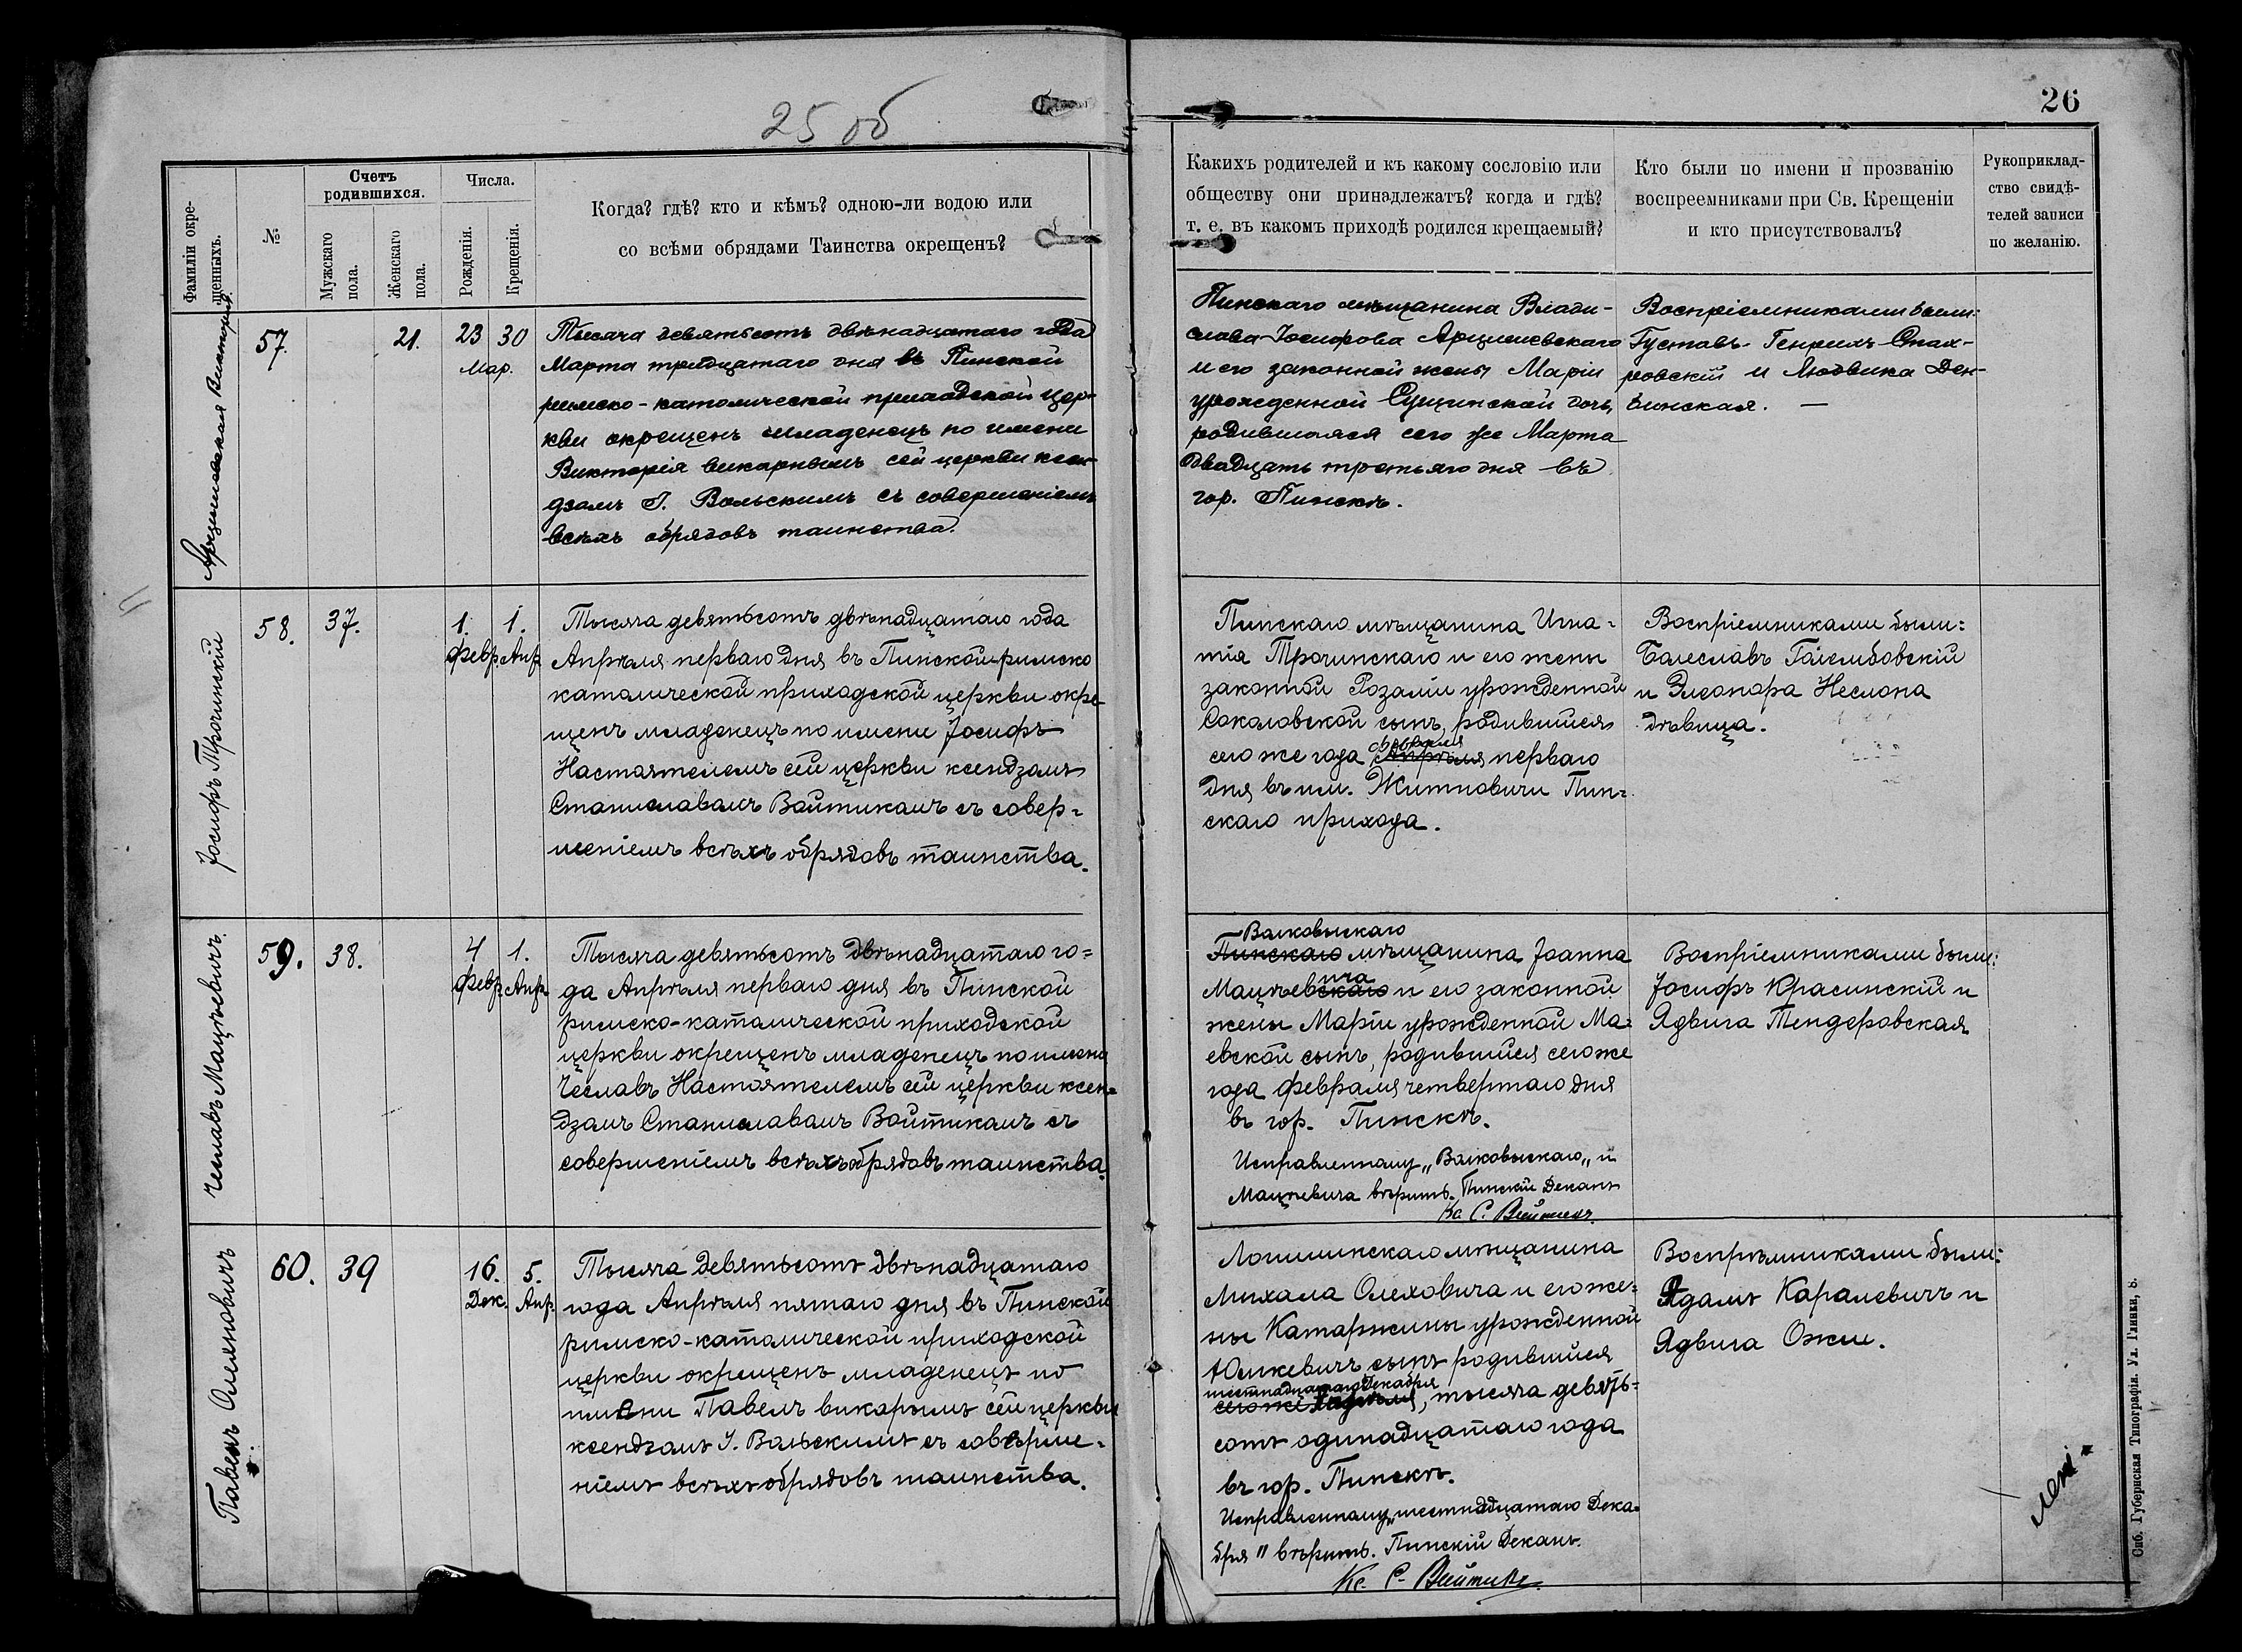 25 об
26
Фамиліи окре-
щенныхъ.
№
Счетъ
родившихся.
Мужскаго
пола.
Женскаго
пола.
Числа.
Рожденія.
Крещенія.
Когда? гдѣ? кто и кѣмъ? одною-ли водою или
со всѣми обрядами Таинства окрещенъ?
Какихъ родителей и къ какому сословію или
обществу они принадлежатъ? когда и гдѣ?
т. е. въ какомъ приходѣ родился крещаемый?
Кто были по имени и прозванію
воспреемниками при Св. Крещеніи
и кто присутствовалъ?
Рукоприклад-
ство свидѣ-
телей записи
по желанію.
Арцишевская Викторія.
57.
21.
23 30
Мар.
Тысяча девятьсотъ двѣнадцатаго года
Марта тридцатаго дня въ Пинской
римско-католической приходской цер-
кви окрещенъ младенецъ по имени
Викторія викарнымъ сей церкви ксен-
дзомъ І. Вольскимъ съ совершеніемъ
всѣхъ обрядовъ таинства.
Пинскаго мѣщанина Влади-
слава Іосифова Арцишевскаго
и его законной жены Маріи
урожденной Сущинской дочь,
родившаяся сего же Марта
двадцать третьяго дня въ
гор. Пинскѣ.
Воспріемниками были:
Густавъ-Генрихъ
и Людвика Ден-
бинская. —
Іосифъ Трочинскій
58.
37.
1.
Февр.
1.
Апр.
Тысяча девятьсотъ двѣнадцатаго года
Апрѣля перваго дня въ Пинской римско
католической приходской церкви окре-
щенъ младенецъ по имени Іосифъ
Настоятелемъ сей церкви ксендзомъ
Станиславомъ Войтикомъ съ совер-
шеніемъ всѣхъ обрядовъ таинства.
Пинскаго мѣщанина Игна-
тія Трочинскаго и его жены
законной Розаліи урожденной
Соколовской сынъ, родившійся
февраля
сего же года Апрѣля перваго
дня въ им. Житновичи Пин-
скаго прихода.
Воспріемниками были:
Болеславъ Голембовскій
и Элеонора Неслона
дѣвица.
Чеславъ Мацѣевичъ.
59.
38.
4
Февр.
1.
Апр.
Тысяча девятьсотъ двѣнадцатаго го-
да Апрѣля перваго дня въ Пинской
римско-католической приходской
церкви окрещенъ младенецъ по имени
Чеславъ Настоятелемъ сей церкви ксен-
дзомъ Станиславомъ Войтикомъ съ
совершеніемъ всѣхъ обрядовъ таинства.
Волковыскаго
Пинскаго мѣщанина Іоанна
ича
Мацѣевскаго и его законной
жены Маріи урожденной Ма-
евской сынъ, родившійся сего же
года февраля четвертаго дня
въ гор. Пинскѣ.
Исправленному „Волковыскаго„ и
Мацѣевича вѣрить. Пинскій Деканъ
Кс. С. Войтикъ.
Воспріемниками были:
Іосифъ Красинскій и
Ядвига Тендеровская
Павелъ Олехновичъ
60.
39
16.
Дек.
5.
Апр.
Тысяча девятьсотъ двѣнадцатаго
года Апрѣля пятаго дня въ Пинской
римско-католической приходской
церкви окрещенъ младенецъ по
имени Павелъ викарымъ сей церкви
ксендзомъ І. Вольскимъ съ соверше-
ніемъ всѣхъ обрядовъ таинства.
Логишинскаго мѣщанина
Михала Олеховича и его же-
ны Катаржины урожденной
Юшкевичъ сынъ родившійся
шестнадцатаго Декабря
сего же, тысяча девять-
сотъ одинадцатаго года
въ гор. Пинскѣ.
Исправленному „шестнадцатаго Дека-
бря" вѣрить. Пинскій Деканъ
Кс. С. Войтикъ.
Воспрѣмниками были:
Адамъ Каралевичъ и
Ядвига Ожги.
Спб. Губернская Типографія. Ул. Глинки, 8.